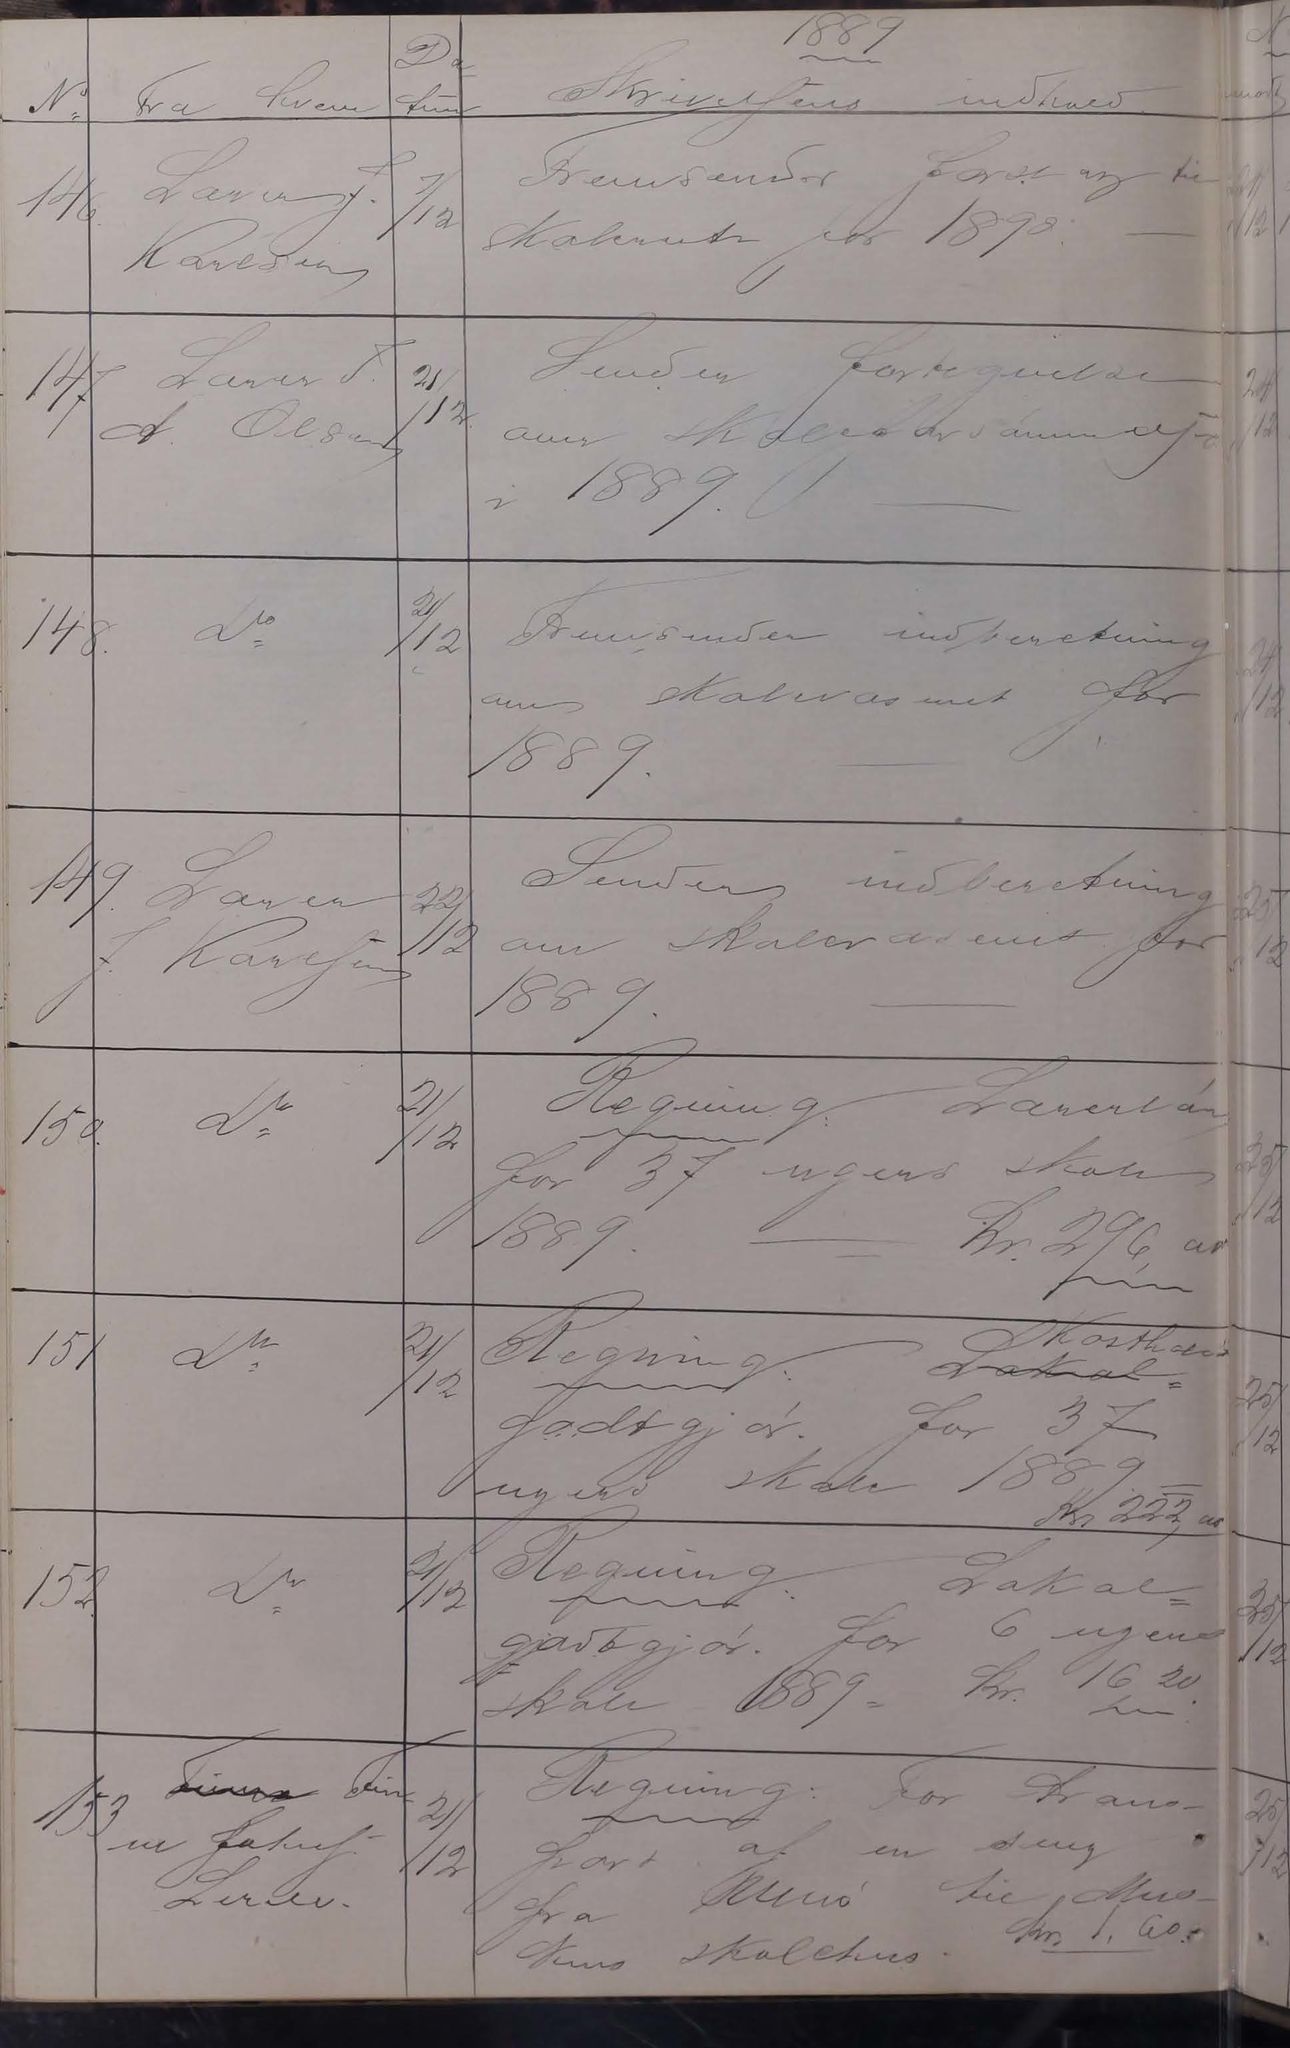 1889
No. Fra hvem Datum Skrivelsens indhold.
146. Lærer J. 21/12 Fremsender forslag til
Karlsen skolerute for 1890. —
147 Lærer T. 21/12. Sender fortegnelse
A. Olsen over skoleforsömmelser
i 1889. —
148. Do 21/12 Fremsender indberetning
om skolevæsenet for
1889. —
149. Lærer 22/12 Sender indberetning
J. Karlsen om skolevæsenet for
1889. —
150. Do 21/12 Regning. Lærerlön
for 37 ugers skole
1889. — kr. 296,00
151 Do 21/12 Regning. Kosthold
Lokal=
godtgjör. for 37
ugers skole 1889
Kr 222,00
152. Do 21/12 Regning. Lokal=
godtgjör. for 6 ugers
skole 1889 = kr. 16,20.
153 Finne Fin 21/12 Regning. For trans-
ne port af en seng
fra til Mus-
kens skolehus. kr. 1,60.
24/12
24/12
24/12
25/12
25/12
25/12
25/12
25/12